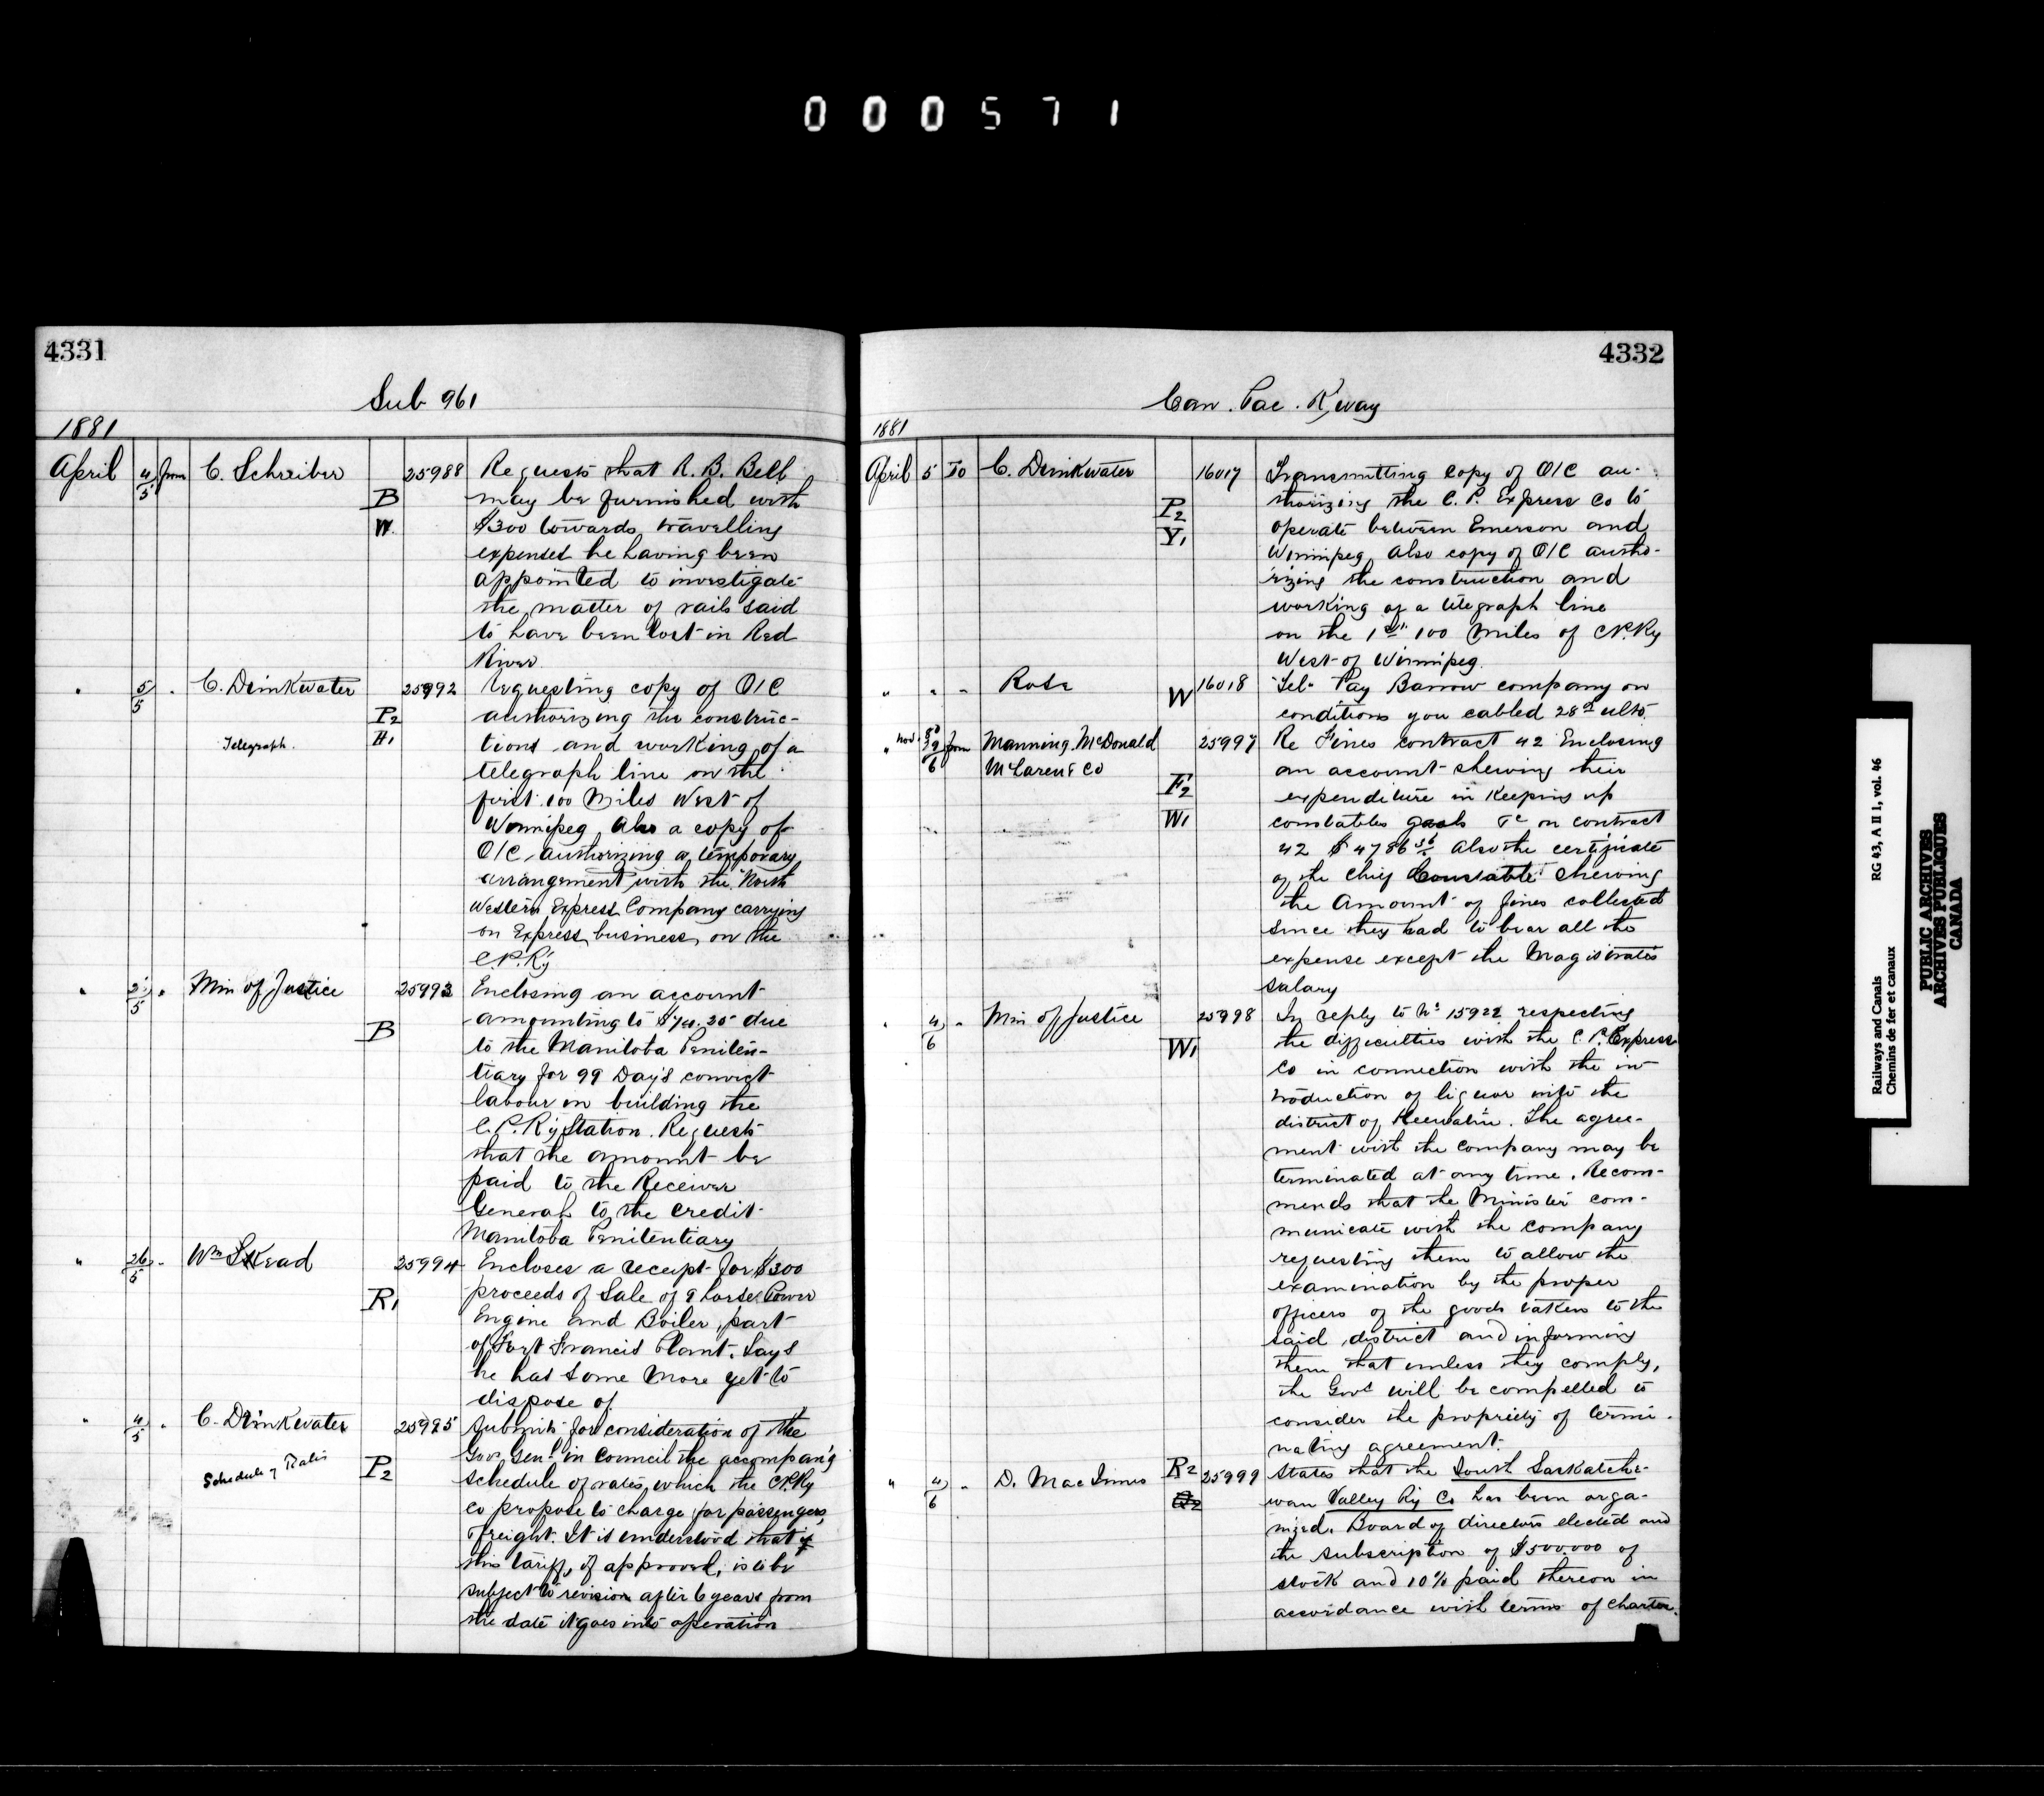 000571
4331
Sub 961
1881
April 4/5 from C. Schreiber 25988 Requests that R. B. Bell
B may be furnished with
W. $300 towards travelling
expenses he having been
appointed to investigate
the matter of rails said
to have been lost in Red
River
" 5/5 " C. Drinkwater 25992 Requesting copy of O/C
P2 authorizing the construc-
Telegraph. H1 tions and working of a
telegraph line on the
first 100 Miles West of
Winnipeg, also a copy of
O/C authorizing a temporary
arrangement with the North
Western Express Company carrying
on Express business on the
C.P.Ry
" 2/5 " Min of Justice 25993 Enclosing an account
B amounting to due
to the Manitoba Peniten-
tiary for 99 Days convict
labour in building the
C. P. Ry Station. Requests
that the amount be
paid to the Receiver
General to the credit
Manitoba Penitentiary
" 26/5 " Wm Skead 25994 Encloses a receipt for $300
R1 proceeds of Sale of 9 horse Power
Engine and Boiler, part
of Fort Francis Plant. Says
he has some more yet to
dispose of
" 4/5 " C. Drinkwater 25995 Submits for consideration of the
Gov Genl in Council the accompan'g
Schedule of Rates P2 schedule of rates which the C.P.Ry
co propose to charge for passengers,
Freight. It is understood that if
this tariff, if approved, is to be
subject to revision after 6 years from
the date it goes into operation
4332
Can. Pac. Rway
1881
April 5 To C. Drinkwater 16017 Transmitting copy of O/C au-
P2 thorizing the C. P. Express Co to
Y1 operate between Emerson and
Winnipeg, also copy of O/C autho-
rizing the construction and
working of a telegraph line
on the 1st 100 Miles of C.P.Ry
West of Winnipeg.
" " " Rose W 16018 Tel. Pay Barrow company on
conditions you cabled 28th ulto.
" Nov. from Manning, McDonald 25997 Re Fines contract 42 Enclosing
McLaren & Co an account shewing their
F2 expenditure in keeping up
W1 constables gaols &c on contract
42 $4786 Also the certificate
of the Chief Constable shewing
the Amount of fines collected
since they had to bear all the
expense except the Magistrates
salary
" 4/6 " Min of Justice 25998 In reply to No 15922 respecting
W1 the difficulties with the C. P. Express
Co in connection with the in-
troduction of liquor into the
district of Keewatin. The agree-
ment with the company may be
terminated at any time. Recom-
mends that the Minister com-
municate with the company
requesting them to allow the
examination by the proper
officers of the goods taken to the
said district and informing
them that unless they comply,
the Govt will be compelled to
consider the propriety of termi-
nating agreement.
" 4/6 " D. MacInnes R2 25999 States that the South Saskatche-
Q2 wan Valley Ry Co has been orga-
nized. Board of directors elected and
the subscription of $500.000 of
stock and 10% paid thereon in
accordance with terms of charter.
Railways and Canals RG 43, A II 1, vol. 46
Chemins de fer et canaux
PUBLIC ARCHIVES
ARCHIVES PUBLIQUES
CANADA